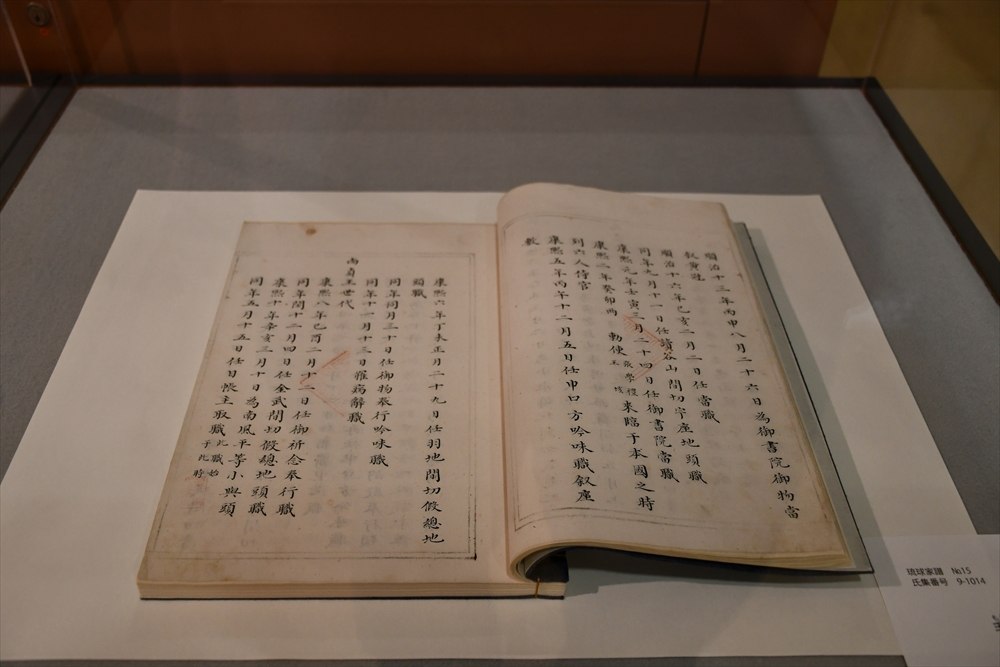 順治十三年丙申八月二十六日為御書院御物當
敘黃冠
順治十六年己亥二月二日任當職
同年九月十一日任讀谷山間切宇座地頭職
康熙元年壬寅三月二十四日任御書院當職
康熙二年癸卯兩 勅使張學禮王 垓来臨于本國之時
到六人侍官
康熙五年丙午十二月五日任申口方吟味職叙座
敷
康熙六年丁未正月二十九日任羽地間切假總地
頭職
同年同月三十日任御物奉行吟味職
同年十一月十三日罹病辭職
尚貞王世代
康熙八年己酉二月十二日任御祈念奉行職
同年閏十二月四日任金武間切假總地頭職
康熙十年辛亥三月十日為南風平等小與頭
同年五月十五日任日帳主取職此職始于此時
琉球家譜 No15
氏集番号 9-1014